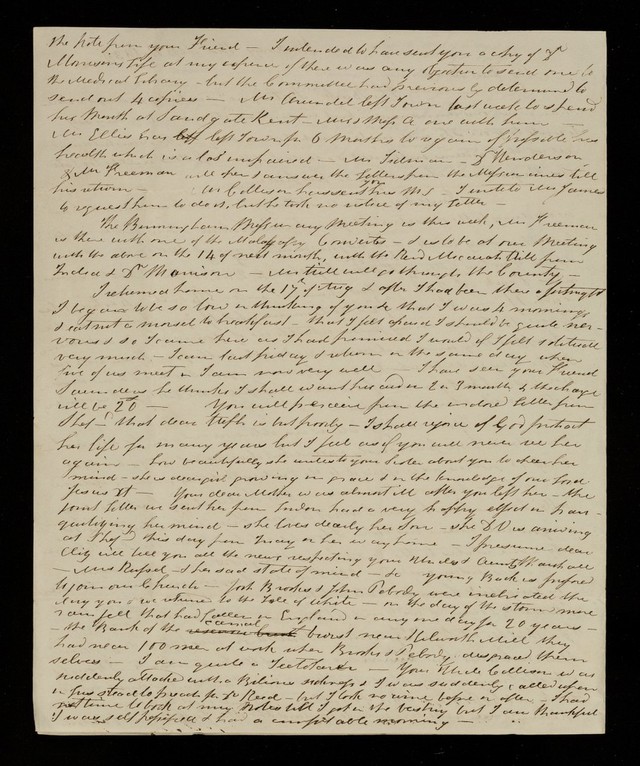 the Note from your Friend — I intended to have sent you a copy of Dr
Morrisons Life at my expence if there was any to send one to
the Medical Library — but the Committee had previously determined to
send out 4 copies — Mr Arundel left Town last week to spend
his Month at Sandgate Kent — Mrs & Miss A are with him
Mr Ellis has left Town for 6 Months to regain if possible his
health which is a lot impaired — Mr Tidman — Dr Henderson
& Mr Freeman will open & answer the Letters from the Missionaries till
his return — Mr Collison has sent you his MS — I wrote to Mr James
to request him to do it, but he took no notice of my letter —
The Birmingham Missionary Meeting is this week, Mr Freeman
is there with one of the Malagasy Converts — & is to be at our Meeting
with the above on the 14 of next month, with the Revd Micaiah Hill from
India & Dr Morrison — Mr Hill will go through the County —
I returned home on the 17th of Aug & after I had been there a fortnight
I began to be so low in thinking of you & that I was 4 mornings
& eat not a morsel to breakfast — that I felt afraid I should be quite ner-
vous & so I came here as I had promised I would if I felt solitude
very much — I came last friday & return on the same day when
five of us meet — I am now very well — I have seen your Friend
Saunders he thinks I shall want his aid in 2 or 3 months & the charge
will be 20 — You will perceive from the enclosed letter from
Shefd that dear is but poorly — I shall rejoice if God protract
her life for many years but I feel as if you will never see her
again — how beautifully she writes to your Sister about you to cheer her
mind — she is dear girl growing in grace & in the knowledge of our Lord
Jesus Xt — Your dear Mother was almost ill after you left her — the
joint letter we sent her from London had a very happy effect in tran-
quilizing her mind — she loves dearly her Son — she D V is arriving
at Shefd this day from on her way home — I presume dear
will tell you all the news respecting your Uncle & Aunt Marshall
— Mrs Russel — & her sad state of mind — &c young Buck is proposed
to join our Church — Josh Brooks & John Pebody were the
day you & we returned to the Isle of White — on the day of the storm more
rain fell that had fallen in England in any one day for 20 years —
— the Bank of the canal burst near Mill they
had near 100 men at work when Brooks & Pebody disgraced them
selves — I am quite a Teetotaler — Your Uncle Collison was
suddenly attacked with a Bilious sickness & I was suddenly called upon
in his stead to preach for Dr Reed — but I took no wine before or after — I had
not time to look at my Notes till I got in the vestry but I am thankful
I was self possessed & had a comfortable morning —